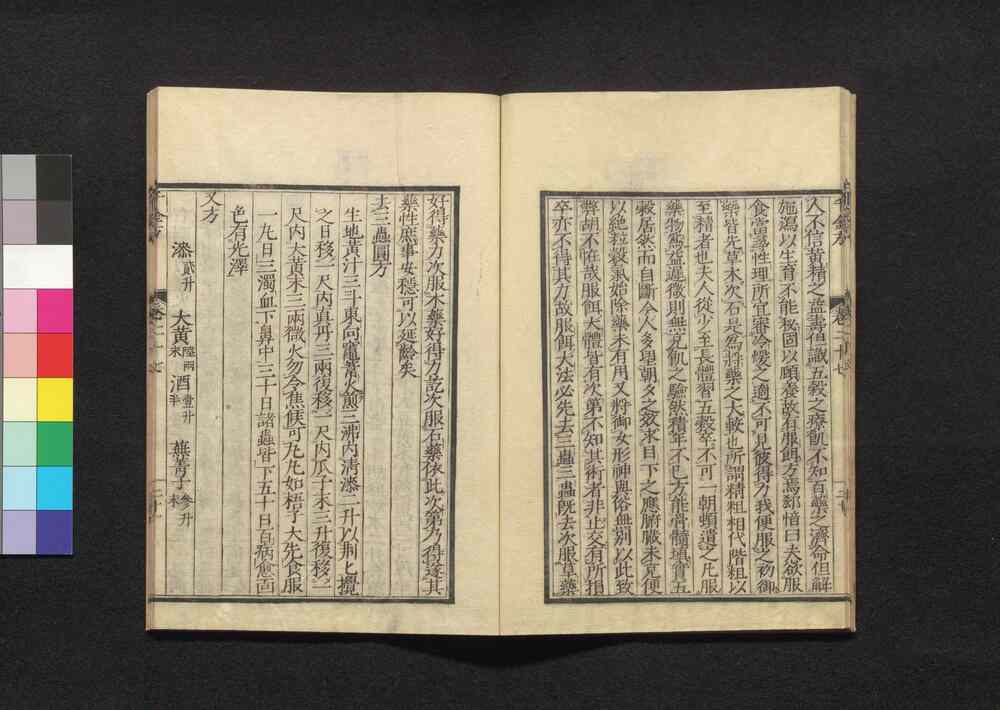 人不信黄精之益壽但識五穀之療飢不知百藥之濟命但解
施瀉以生育不能秘固以頤養故有服餌方焉郄愔曰夫欲服
食當尋性理所宜審冷煖之適不可見彼得力我便服之初御
藥皆先草木次石是爲將藥之大較也所謂精粗相代階粗以
至精者也夫人從少至長體習五穀卒不可一朝頓遣之凡服
藥物爲益遲微則無充飢之驗然積年不已方能骨髓填實五
穀居然而自斷今人多望朝夕之效求目下之應腑臟未充便
以絶粒穀氣始除藥未有用又將御女形神與俗無別以此致
弊胡不怪哉服餌大體皆有次第不知其術者非止交有所損
卒亦不得其力故服餌大法必先去三蟲三蟲既去次服草藥
好得藥力次服木藥好得力訖次服石藥依此次第乃得遂其
藥性庶事安穩可以延齡矣
去三蟲圓方
生地黃汁三斗東向竈葦火煎三沸內清漆二升以荆匕攪
之日移一尺內眞丹三兩復移一尺內瓜子末三升復移一
尺內大黃末三兩微火勿令焦候可丸丸如梧子大先食服
一丸日三濁血下鼻中三十日諸蟲皆下五十日百病愈面
色有光澤
又方
漆貳升 大黃末陸兩 酒壹升半 蕪菁子末參升
千金方
卷二十七